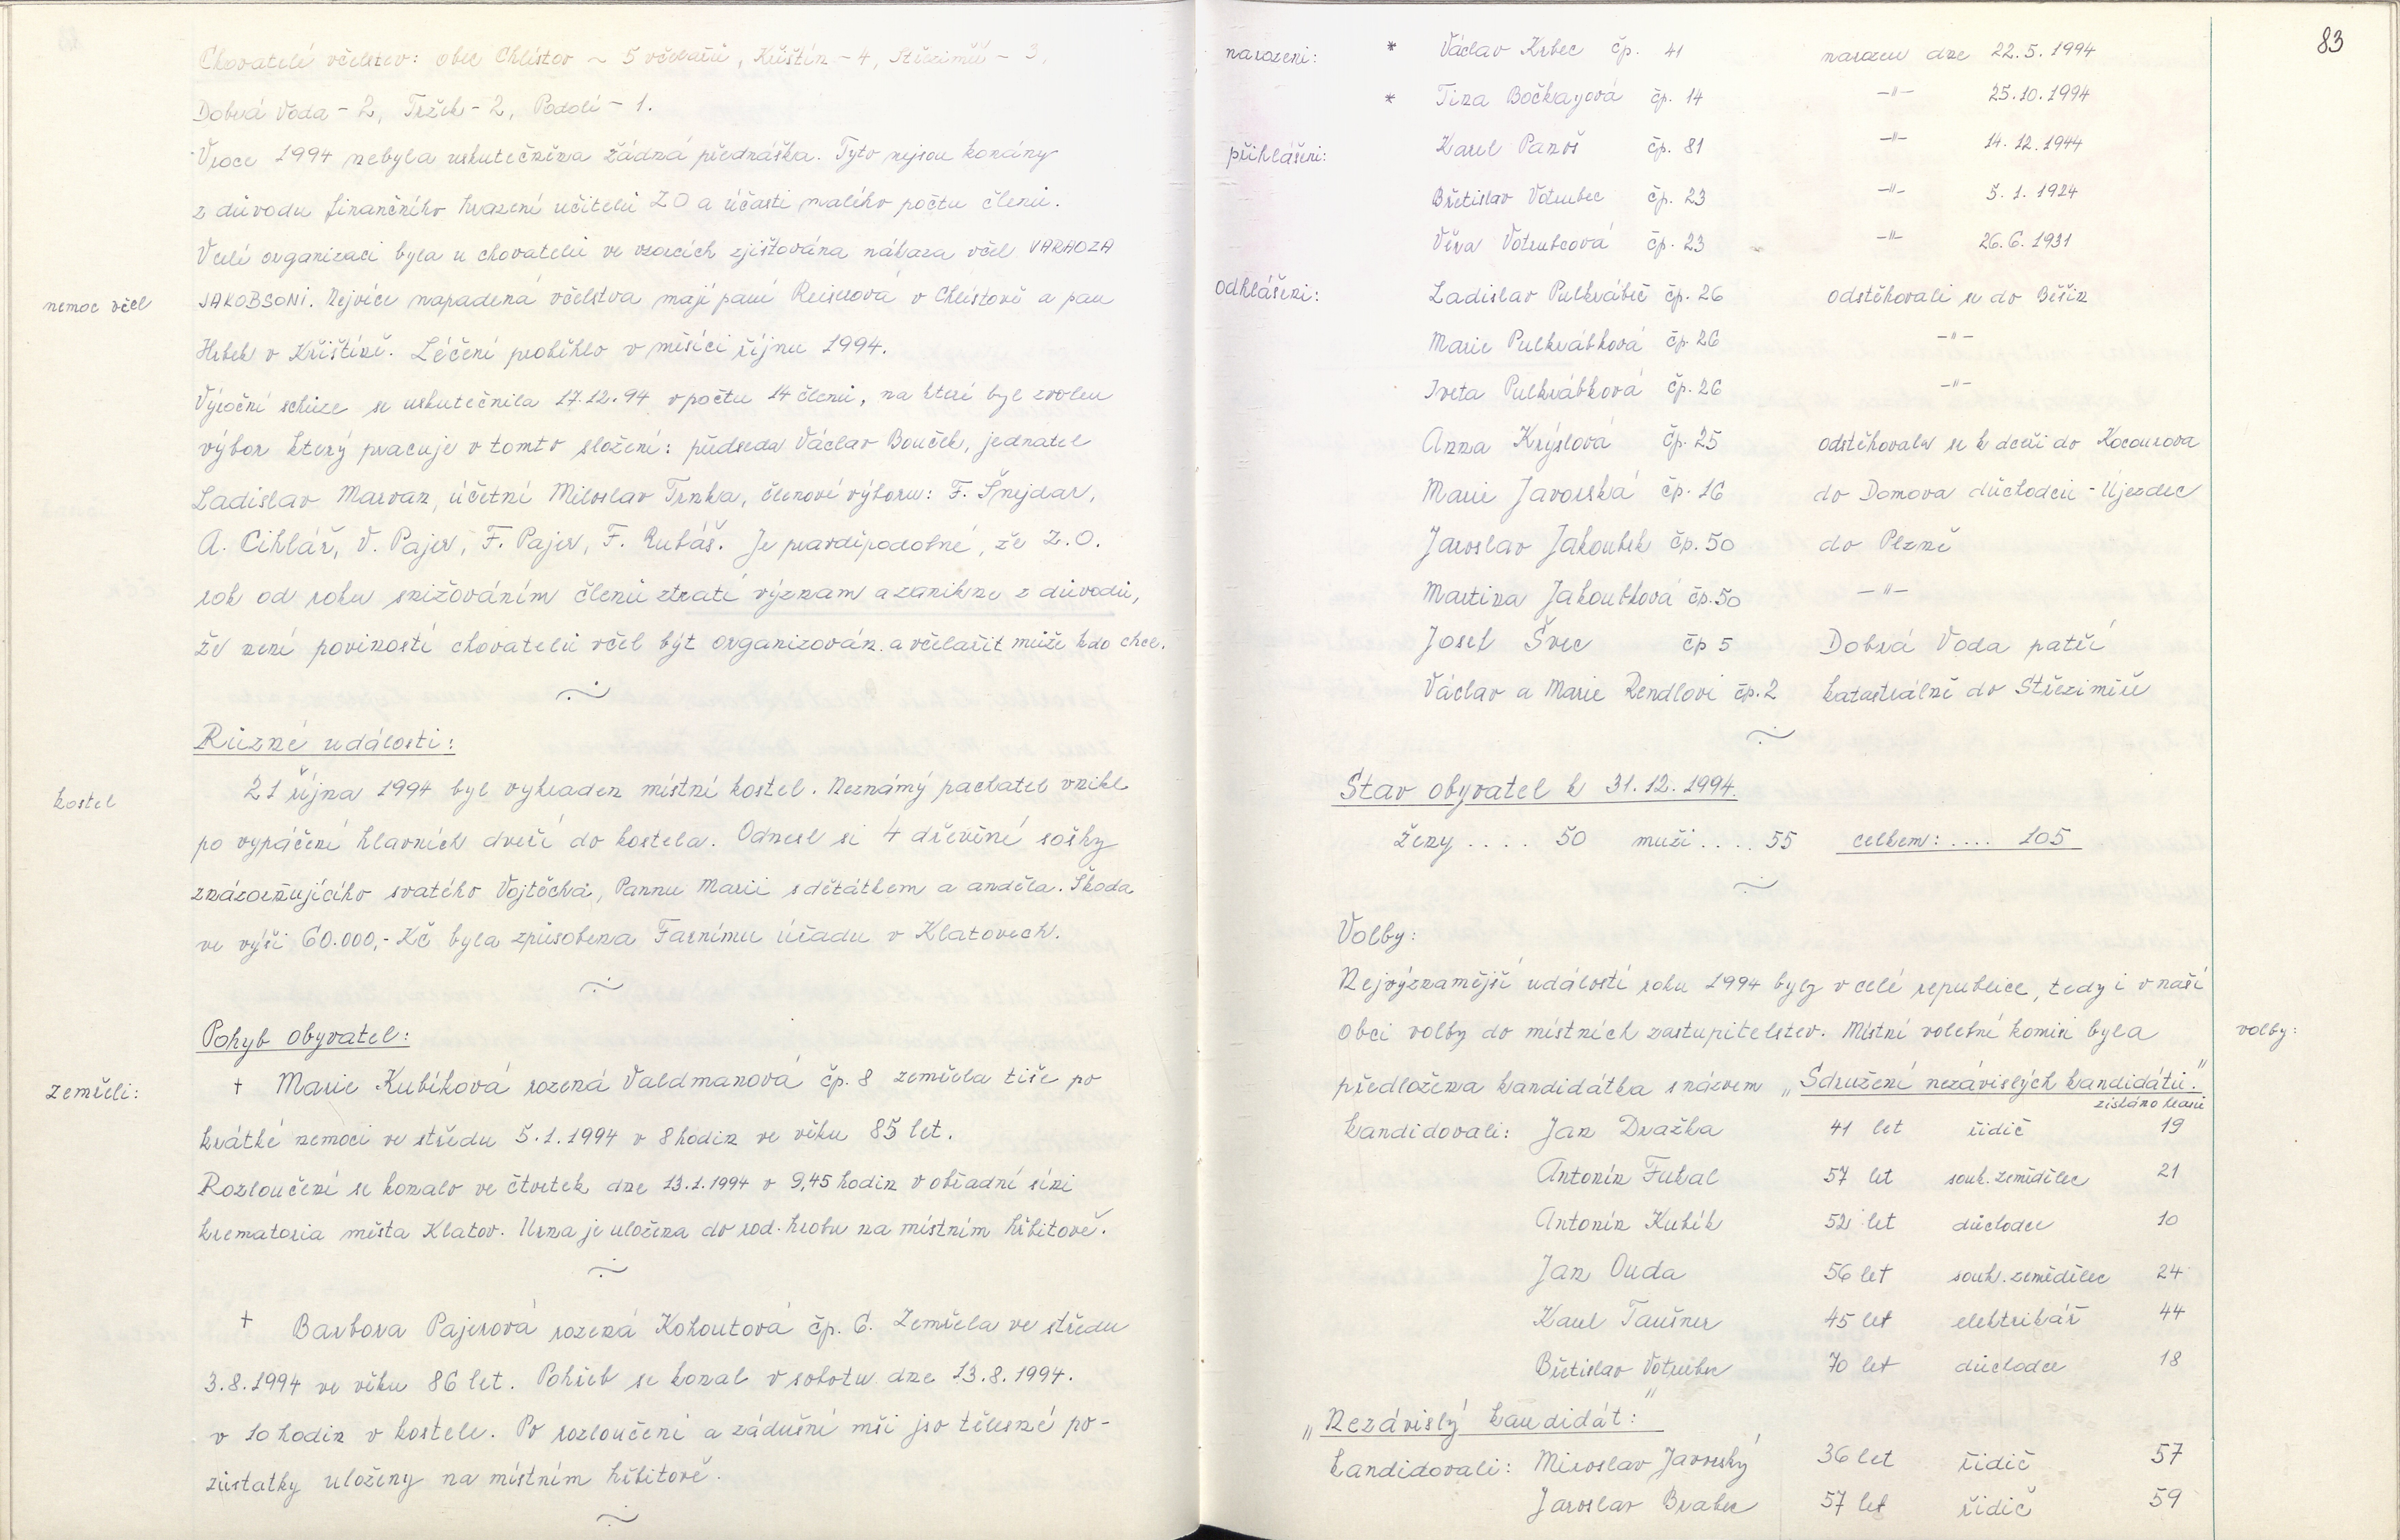 Chovatelé včelstev: obec Chlístov ~ 5 včelařů, Křištín - 4, Střezimíř - 3,
Dobrá Voda - 2, Tržek - 2, Podolí - 1.
V roce 1994 nebyla uskutečněna žádná přednáška. Tyto nejsou konány
z důvodu finančního hrazení učitelů ZO a účasti malého počtu členů.
V celé organizaci byla u chovatelů ve vzorcích zjištována nákaza včel VARAOZA
nemoc včel
JAKOBSONI. Nejvíce napadená včelstva mají paní Reiserová v Chlístově a pan
Hrbek v Křištíně. Léčení proběhlo v měsíci říjnu 1994.
Výroční schůze se uskutečnila 17.12.94 v počtu 14 členů, na které byl zvolen
výbor který pracuje v tomto složení: předseda Václav Bouček, jednatel
Ladislav Marvan, účetní Miloslav Trnka, členové výboru: F. Šnejdar,
A. Cihlář, V. Pajer, F. Pajer, F. Rubáš. Je pravděpodobné, že Z.O.
rok od roku snižováním členů ztratí význam a zanikne z důvodů,
že není poviností chovatelů včel být organizován a včelařit může kdo chce.
Různé události:
kostel
21 října 1994 byl vykraden místní kostel. Neznámý pachatel vnikl
po vypáčení hlavních dveří do kostela. Odnesl si 4 dřevěné sošky
znázorňujícího svatého Vojtěcha, Pannu Marii s dětátkem a anděla. Škoda
ve výši 60.000,- Kč byla způsobena Farnímu úřadu v Klatovech.
Pohyb obyvatel:
zemřeli:
† Marie Kubíková rozená Valdmanová čp. 8 zemřela tiše po
krátké nemoci ve středu 5.1.1994 v 8 hodin ve věku 85 let.
Rozloučení se konalo ve čtvrtek dne 13.1.1994 v 9,45 hodin v obřadní síni
krematoria města Klatov. Urna je uložena do rod. hrobu na místním hřbitově.
† Barbora Pajerová rozená Kohoutová čp. 6. Zemřela ve středu
3.8.1994 ve věku 86 let. Pohřeb se konal v sobotu dne 13.8.1994.
v 10 hodin v kostele. Po rozloučení a zádušní mši jso tělesné po-
zůstatky uloženy na místním hřbitově.
83
narozeni: * Václav Krbec čp. 41 narozen dne 22.5.1994
* Tina Bočkayová čp. 14 -"- 25.10.1994
přihlášeni: Karel Panoš čp. 81 -"- 14.12.1944
Břetislav Votrubec čp. 23 -"- 5.1.1924
Věra Votrubcová čp. 23 -"- 26.6.1931
odhlášeni: Ladislav Pulkrábek čp. 26 odstěhovali se do Běšin
Marie Pulkrábková čp. 26 -"-
Iveta Pulkrábková čp. 26 -"-
Anna Krýslová čp. 25 odstěhovala se k dceři do Kocourova
Marie Javorská čp. 16 do Domova důchodců - Újezdec
Jaroslav Jakoubek čp. 50 do Plzně
Martina Jakoubková čp. 50 -"-
Josef Švec čp 5 Dobrá Voda patří
Václav a Marie Rendlovi čp. 2 katastrálně do Střezimíře
Stav obyvatel k 31.12.1994.
ženy .... 50 muži .... 55 celkem: .... 105
Volby:
Nejvýznamější událostí roku 1994 byly v celé republice, tedy i v naší
obci volby do místních zastupitelstev. Místní volební komisi byla
volby:
předložena kandidátka s názvem „Sdružení nezávislých kandidátů."
získáno hlasů
kandidovali: Jan Dražka 41 let řidič 19
Antonín Fukal 57 let souk. zemědělec 21
Antonín Kubík 52 let důchodce 10
Jan Ouda 56 let souk. zemědělec 24
Karel Taušner 45 let elektrikář 44
Břetislav Votrubec 70 let důchodce 18
„Nezávislý kandidát:"
kandidovali: Miroslav Javorský 36 let řidič 57
Jaroslav Brabec 57 let řidič 59